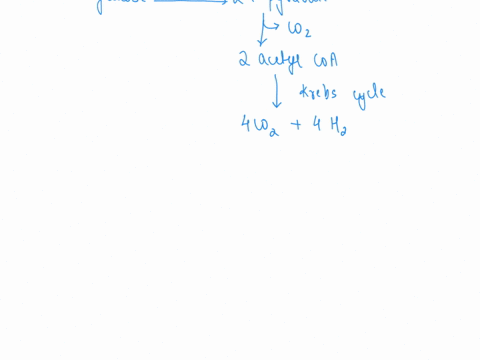 CO2
2 acetyl CoA
Krebs cycle
4CO2 + 4 H2